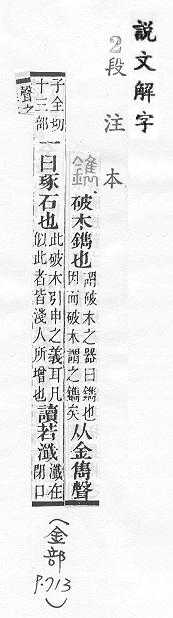 說文解字
2段注本
鐫 破木鐫也 謂破木之器曰鐫也
因而破木謂之鐫矣 从金雋聲
子全切
十三部 一曰琢石也 此破木引申之義耳凡
似此者皆淺人所增也 讀若瀸 瀸在
閉口
聲之
(金部
p.713)